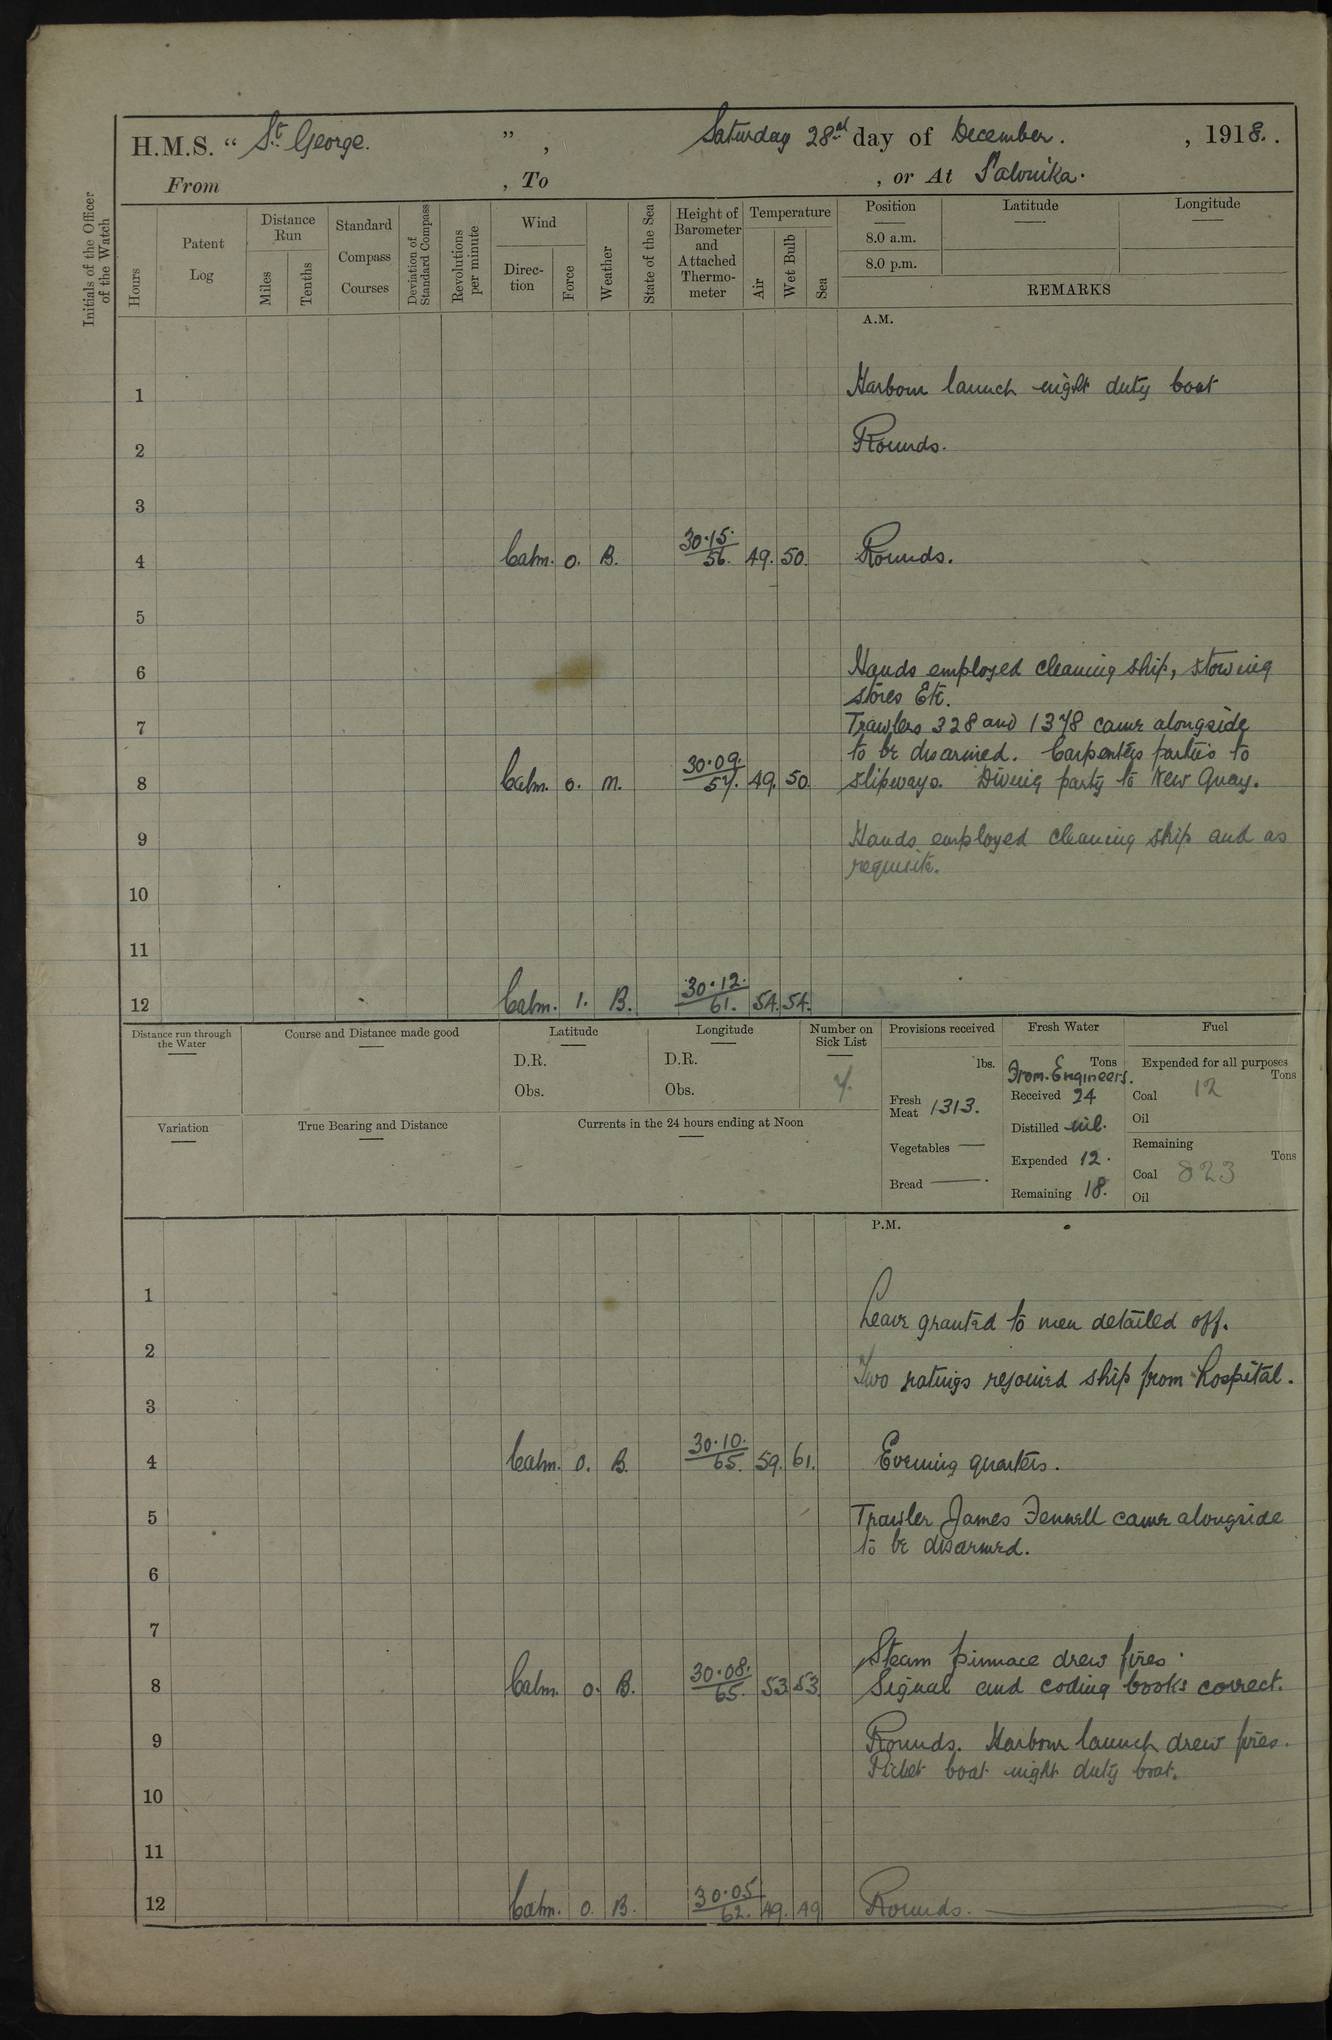 H.M.S. “ St. George. ” , Saturday 28ed day of December. , 1918.
From , To , or At Salonika.
Initials of the Officer of the Watch
Hours
Patent Log
Distance Run
Miles
Tenths
Standard Compass Courses
Deviation of Standard Compass
Revolutions per minute
Wind
Direc-tion
Force
Weather
State of the Sea
Height of Barometer and Attached Thermo-meter
Temperature
Air
Wet Bulb
Sea
Position Latitude Longitude
8.0 a.m.
8.0 p.m.
REMARKS
A.M.
1 Harbour launch night duty boat
2 Rounds.
3
4 Calm. 0. B. 30.15. 56. 49. 50. Rounds.
5
6 Hands employed cleaning ship, stowing
stores Etc.
7 Trawlers 328 and 1378 came alongside
to be disarmed. Carpenters parties to
8 Calm. 0. M. 30.09. 57. 49. 50. slipways. Diving party to New Quay.
9 Hands employed cleaning ship and as
requisite.
10
11
12 Calm. 1. B. 30.12. 61. 54. 54.
Distance run through the Water
Course and Distance made good
Latitude
D.R.
Obs.
Longitude
D.R.
Obs.
Number on Sick List
7.
Provisions received
lbs.
Fresh Meat 1313.
Vegetables —
Bread — .
Fresh Water
Tons
From Engineers.
Received 24
Distilled nil.
Expended 12.
Remaining 18.
Fuel
Expended for all purposes
Tons
Coal 12
Oil
Remaining
Tons
Coal 823
Oil
Variation
True Bearing and Distance
Currents in the 24 hours ending at Noon
P.M.
1
Leave granted to men detailed off.
2
Two ratings rejoined ship from hospital.
3
4 Calm. 0. B. 30.10. 65. 59. 61. Evening quarters.
5 Trawler James Fennell came alongside
to be disarmed.
6
7
Steam pinnace drew fires.
8 Calm. 0. B. 30.08. 65. 53 53. Signal and coding books correct.
9 Rounds. Harbour launch drew fires.
Picket boat night duty boat.
10
11
12 Calm. 0. B. 30.05 62. 49. 49 Rounds.